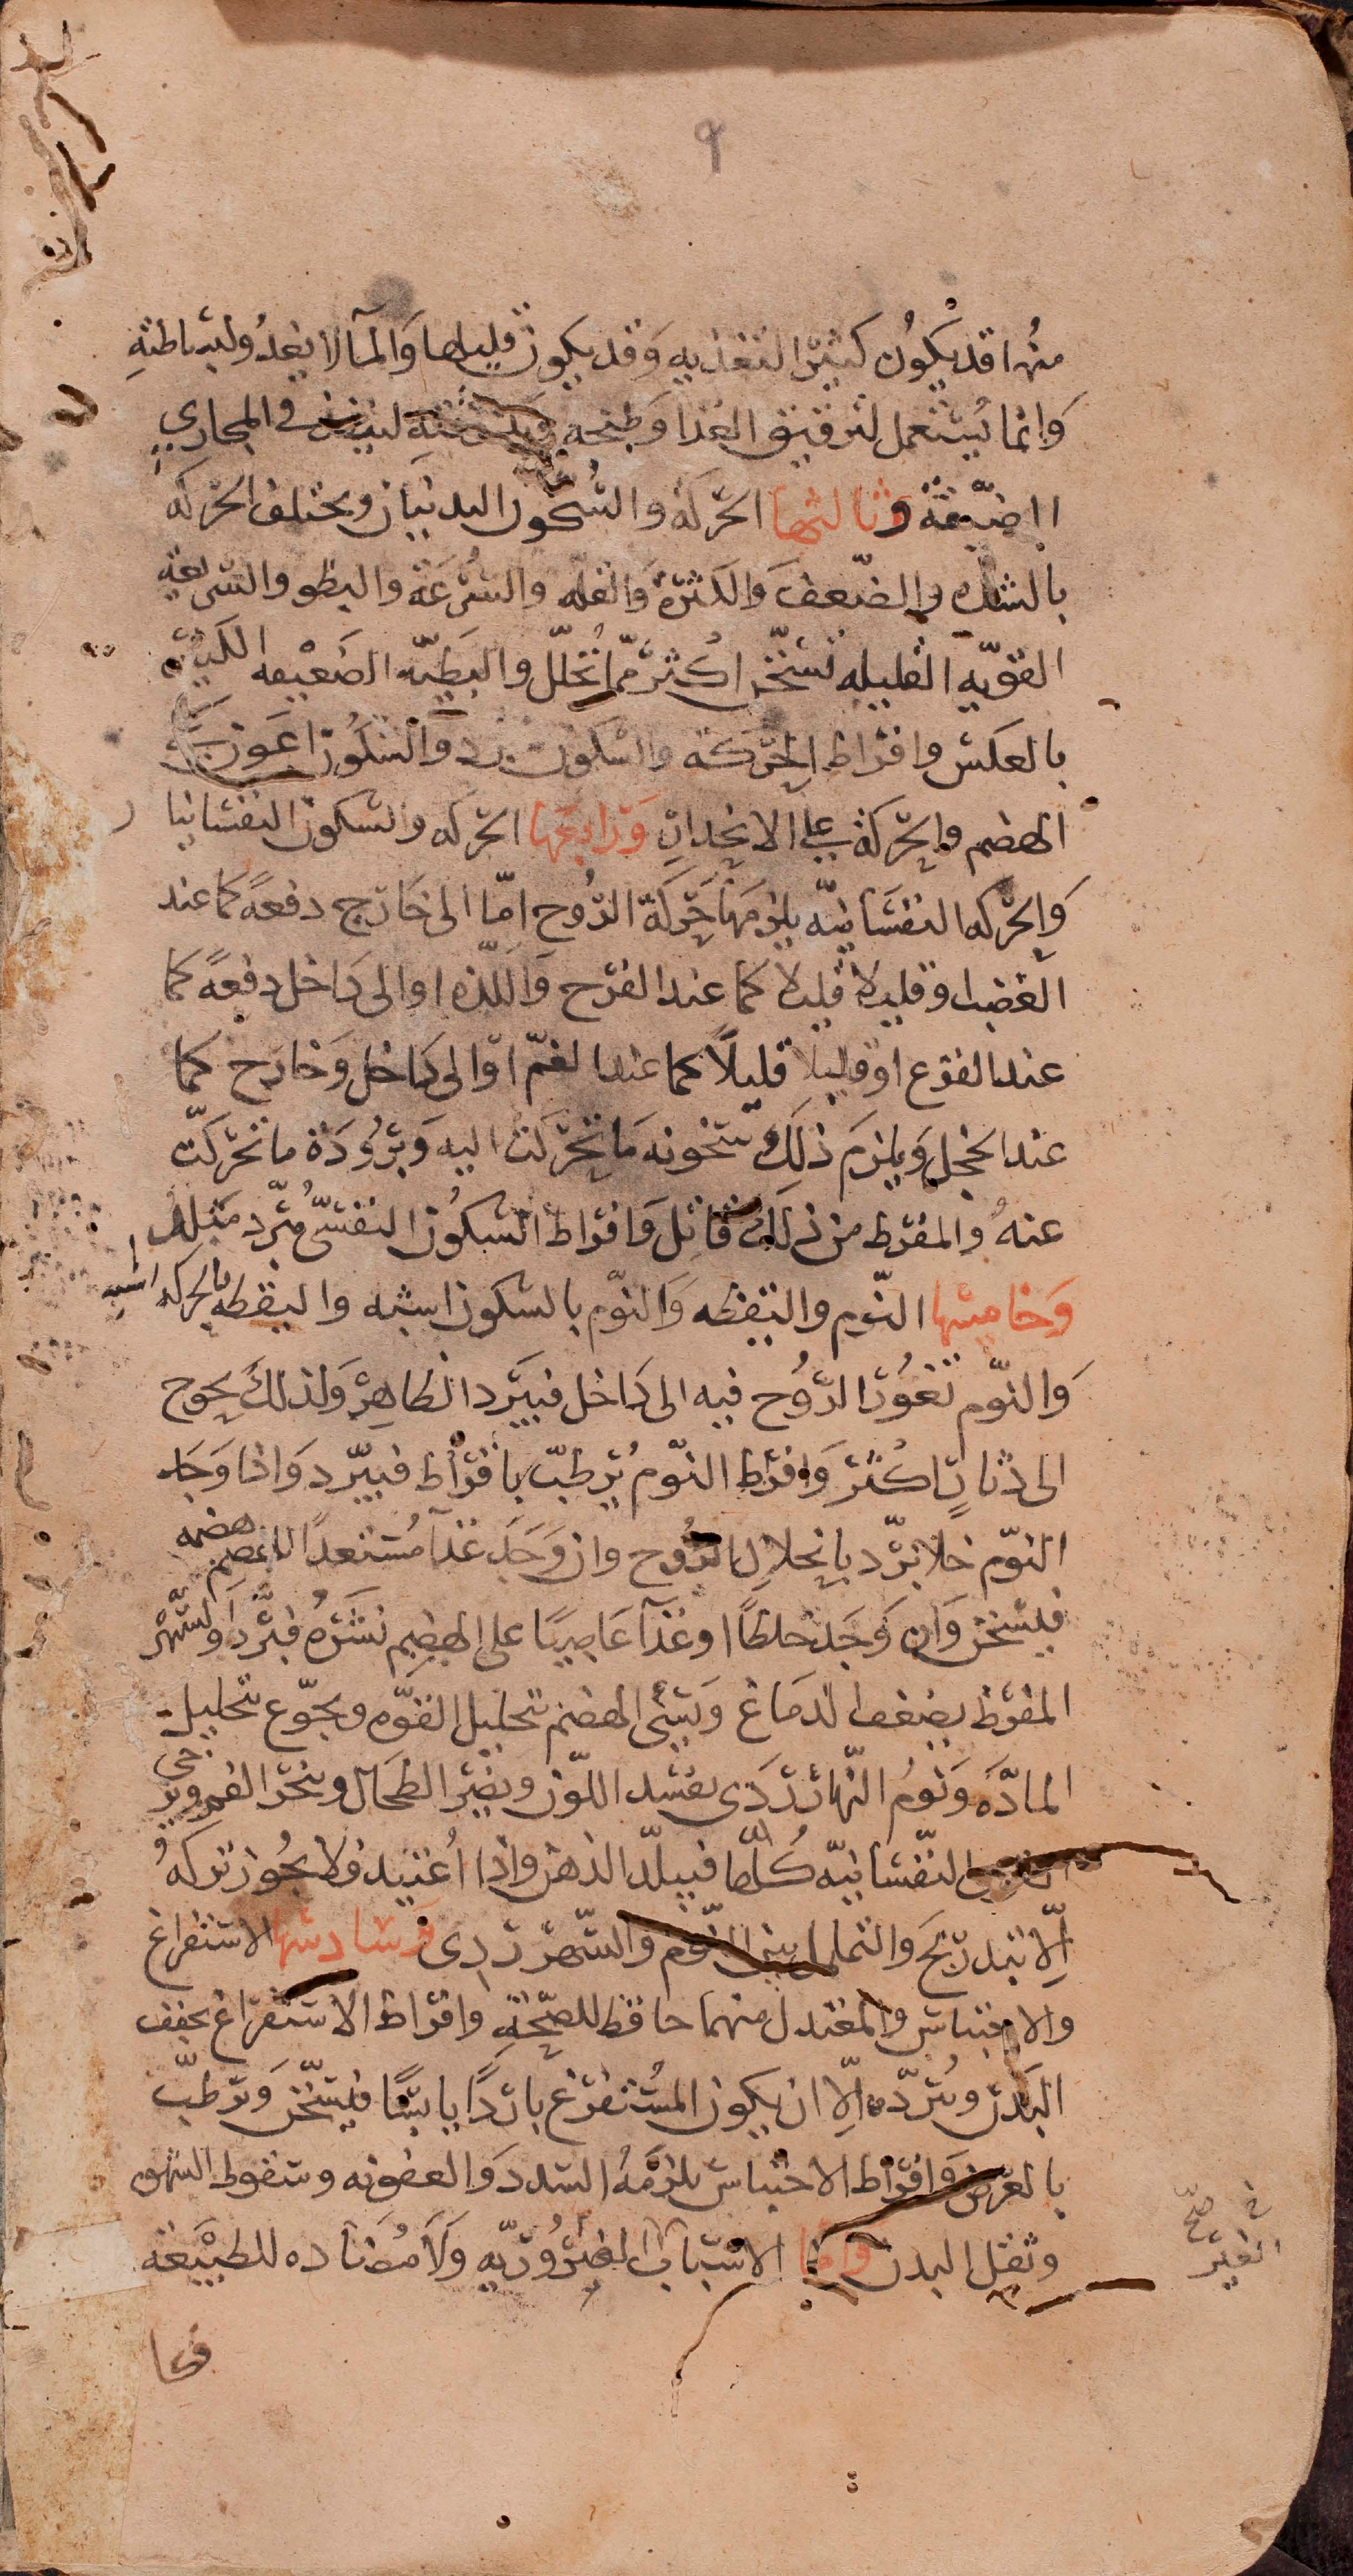 ٩
منها قد يكون كثير التغذيه وقد يكون قليلها والمآ لا يغذوا لبساطته
وانما يستعمل لترقيق الغذا وطبخه لينفذ في المجاري
الضيّقة وثالثها الحركة والسكون البدنيان ويختلف الحركه
بالشده والضّعف والكثرة والقله والسّرعة والبطو والسّريعة
القويّه القليله تسخّن اكثر ممّا تحلّل والبطيّه الضعيفه الكثيره
بالعكس وافراط الحركه والسكون يبرد والسكون اعون على
الهضم والحركة على الانحدار ورابعها الحركه والسكون النفسانيا
والحركه النفسانيّه يلزمها حركة الرّوح امّا الى خارج دفعةً كما عند
الغضب او قليلا قليلا كما عند الفرح واللّذه او الى داخل دفعةً كما
عند الفزع او قليلا قليلاً كما عند الغمّ او الى داخل وخارج كما
عند الخجل ويلزم ذلك سخونه ما تحركت اليه وبرودة ما تحركت
عنه والمفرط من ذلك قاتل وافراط السكون النفسيّ مبرّد مبلد
وخامسها النّوم واليقظه والنّوم بالسكون اشبه واليقظه بالحركه اشبه
والنّوم تغور الرّوح فيه الى داخل فيبرد الظاهر ولذلك يحوج
الى دثارٍ اكثر وافراط النّوم يرطبّ بافراط فيبّرد واذا وجد
النوّم خلا برّد بانحلال الرّوح وان وجد غذآ مستعداً للهضم هضمه
فيسّخن وان وجد خلطاً او غذآ عاصيًا على الهضم نشره فبّرد والسّهر
المفرط يضعف الدماغ ويسي الهضم بتحليل القوّه ويجوّع بتحليل
المادّه ونوم النّهار ردى يفسد اللّون ويضّر الطحال ويبخّر الفم ويرخى
القوى النّفسانيّه كلّها فيبلّد الذهن واذا اعتيد فلا يجوز تركه
الّا بتدريج والتململ بين النّوم والسّهر ردى وسادسها الاستفراغ
والاحتباس والمعتدل منهما حافظ للصّحّة وافراط الاستفراغ يجفف
البدن ويبّرده الّا ان يكون المستفرغ باردًا يابسًا فيسّخن ويرطبّ
بالعرض وافراط الاحتباس يلزمه السدد والعفونه وسقوط الشهوه
وثقل البدن واما الاسباب الغير ضروريّه ولا مضاده للطبيعة
فهى